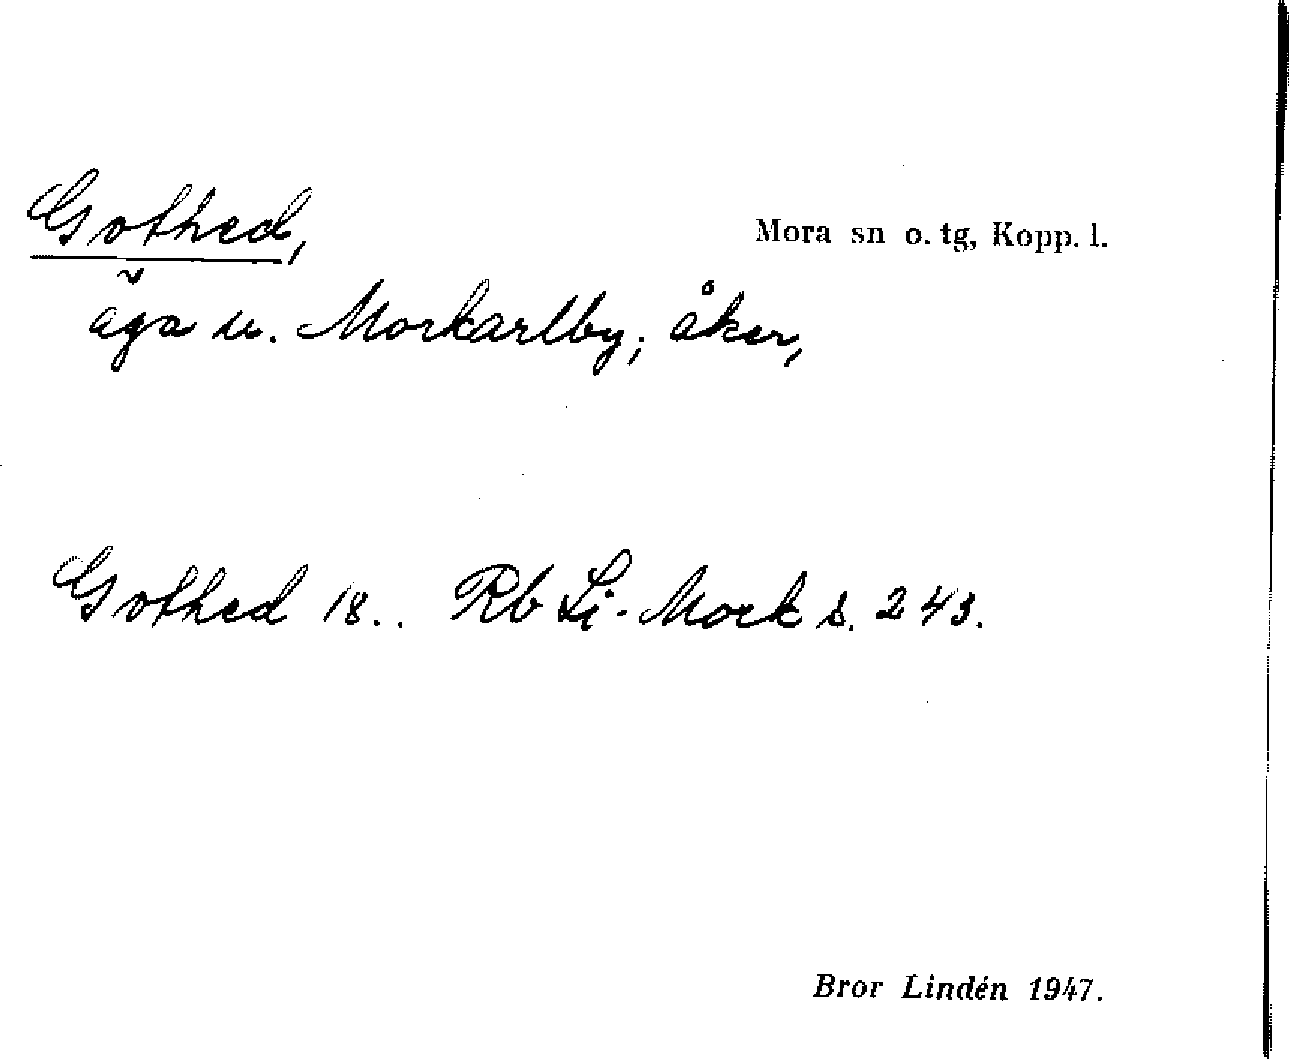 Gothed,
Mora sn o. tg, Kopp. l.
äga u. Morkarlby; åker,
Gothed 18.. Rb Li-Mork s. 243.
Bror Lindén 1947.